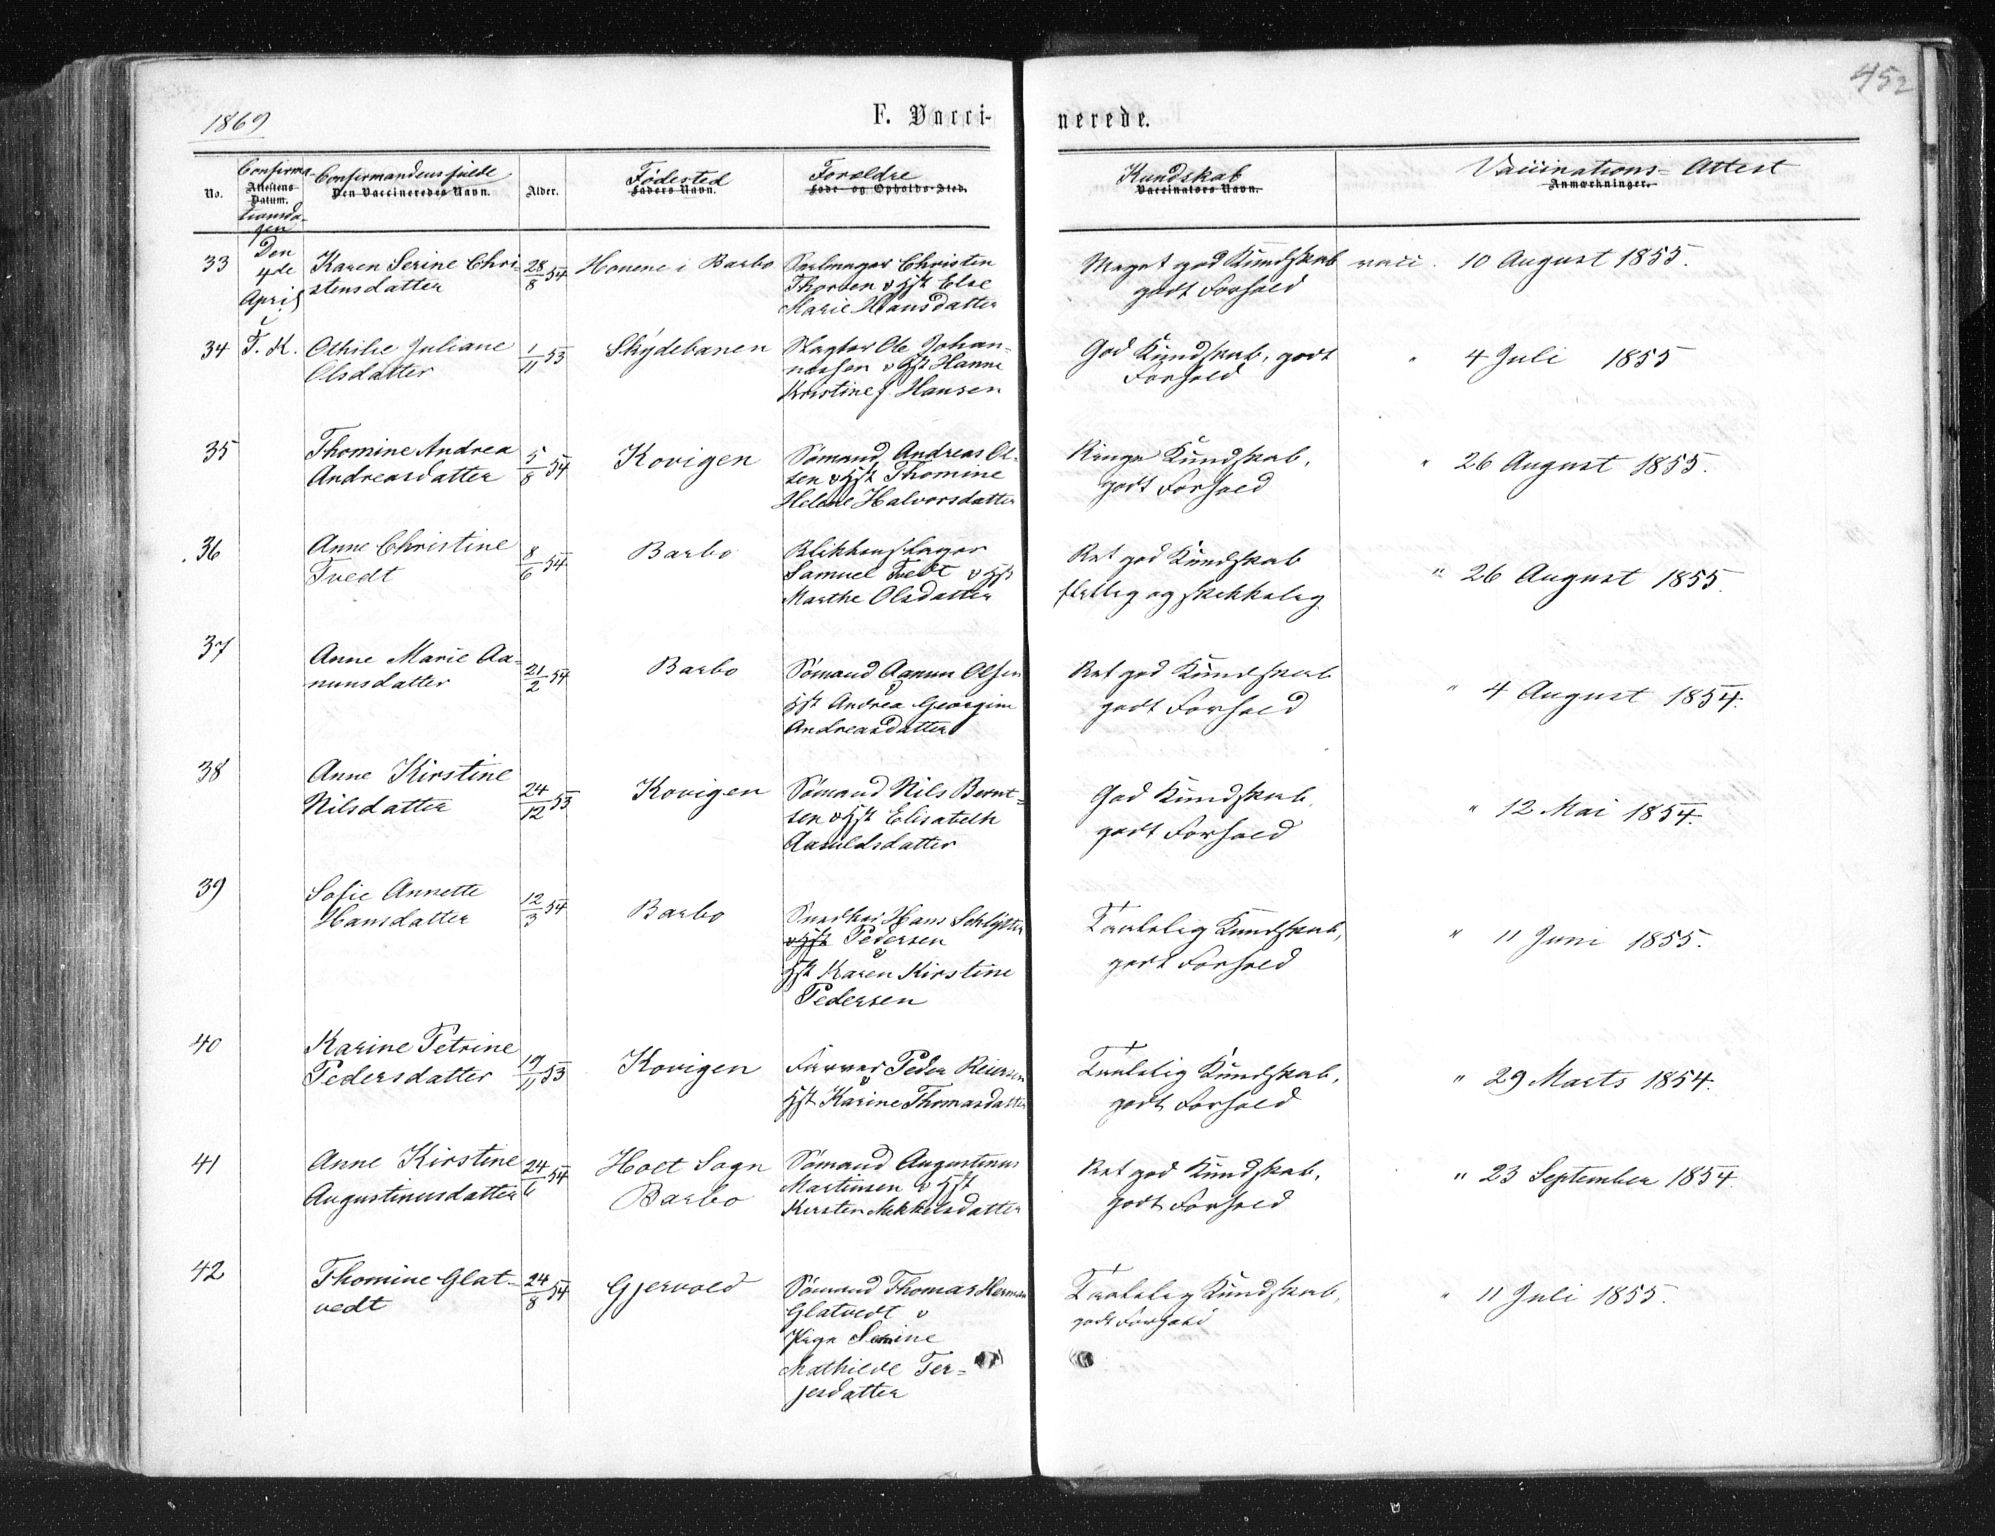 452
1869
F. Vacci-
nerede.
No.
Confirma-
Attestens
Datum.
tionsda-
gen
Confirmandens fulde
Den Vaccineredes Navn.
Alder.
Fødested
Faders Navn.
Forældre
Føde- og Opholds-Sted.
Kundskab
Vaccinators Navn.
Vaccinations-Attest
Anmærkninger.
33
Den
4de
April
i
T. K.
Karen Serine Chri-
stensdatter
28/8 54
i Barbo
Christen
v Hst Else
Marie Hansdatter
Meget god Kundskab
godt Forhold
vacc. 10 August 1855.
34
Othilie Juliane
Olsdatter
1/11 53
Skydebanen
Slagter Ole Johan-
nessen v Hst Hanne
Kristine f Hansen
God Kundskab, godt
Forhold
" 4 Juli 1855
35
Thomine Andrea
Andreasdatter
5/8 54
Kovigen
Sømand Andreas Ol-
sen v Hst Thomine
Helene Halvorsdatter
Ringe Kundskab,
godt Forhold
" 26 August 1855.
36
Anne Christine
Tvedt
8/6 54
Barbo
Blikkenslager
Samuel Tvedt v Hst
Marthe Olsdatter
Ret god Kundskab
flittig og skikkelig
" 26 August 1855.
37
Anne Marie Aa-
nunsdatter
21/2 54
Barbo
Sømand Aanun Olsen
v
Hst Andrea Georgine
Andreasdatter
Ret god Kundskab
godt Forhold
" 4 August 1854.
38
Anne Kirstine
Nilsdatter
24/12 53
Kovigen
Sømand Nils Bernt-
sen v Hst Elisabeth
Aanuldsdatter
God Kundskab,
godt Forhold
" 12 Mai 1854.
39
Sofie Annette
Hansdatter
12/3 54
Barbo
Snedker Hans Schlytter
v Hst Pedersen
v
Hst Karen Kirstine
Pedersen
Taalelig Kundskab,
godt Forhold
" 11 Juni 1855.
40
Karine Petrine
Pedersdatter
19/11 53
Kovigen
Farver Peder Reiersen
v
Hst Karine Thomasdatter
Taalelig Kundskab,
godt Forhold
" 29 Marts 1854.
41
Anne Kirstine
Augustinusdatter
24/6 54
Holt Sogn
Barbo
Sømand Augustinus
Martinsen v Hst
Kirsten Mekkelsdatter
Ret god Kundskab,
godt Forhold
" 23 September 1854.
42
Thomine Glat-
vedt
24/8 54
Gjervold
Sømand Thomas Herman
Glatvedt v
Pige Serine
Mathilde Ter-
jesdatter
Taalelig Kundskab,
godt Forhold
" 11 Juli 1855.